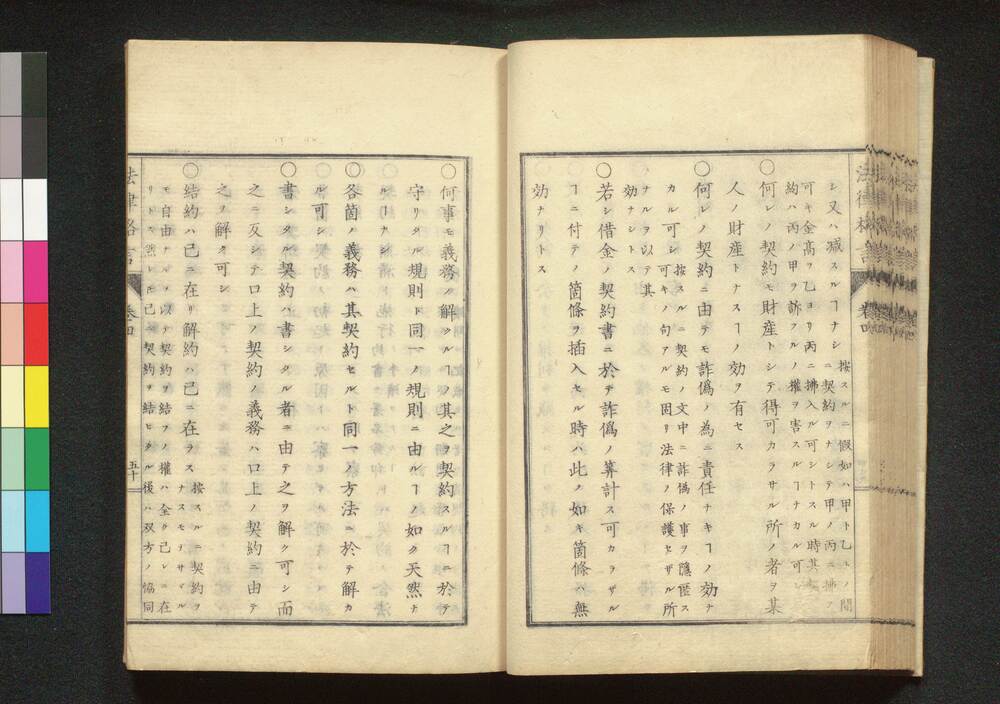 シ又ハ減スルヿナシ
按スルニ假如ハ甲ト乙トノ間
ニ契約ヲナシテ甲ノ丙ニ拂フ
可キ金高ヲ乙ヨリ丙ニ拂入ル可シトスル時其
約ハ丙ノ甲ヲ訴フルノ權ヲ害スルヿナカル可シ
〇何レノ契約モ財産トシテ得可カラサル所ノ者ヲ某
人ノ財産トナスヿノ効ヲ有セス
〇何レノ契約ニ由テモ詐偽ノ為ニ責任ナキヿノ効ナ
カル可シ
按スルニ契約ノ文中ニ詐偽ノ事ヲ隱匿ス
可キノ句アルモ固リ法律ノ保護セサル所
ナルヲ以テ其
効ナシトス
〇若シ借金ノ契約書ニ於テ詐偽ノ算計ス可カラザル
ヿニ付テノ箇條ヲ插入セル時ハ此ノ如キ箇條ハ無
効ナリトス
法律格言
卷四
〇何事モ義務ノ解クルヿハ其之ヲ契約スルヿニ於テ
守リタル規則ト同一ノ規則ニ由ルヿノ如ク天然ナ
ルハナシ
〇各箇ノ義務ハ其契約セルト同一ノ方法ニ於テ解カ
ル可シ
〇書シタル契約ハ書シタル者ニ由テ之ヲ解ク可シ而
之ニ反シテ口上ノ契約ノ義務ハ口上ノ契約ニ由テ
之ヲ解ク可シ
〇結約ハ己ニ在リ解約ハ己ニ在ラス
按スルニ契約ヲ
ナスモナサヾル
モ自由ナルヲ以テ契約ヲ結フノ權ハ全ク己レニ在
リトモ然レトモ已ニ契約ヲ結ヒタル後ハ双方ノ協同
法律格言
卷四
五十